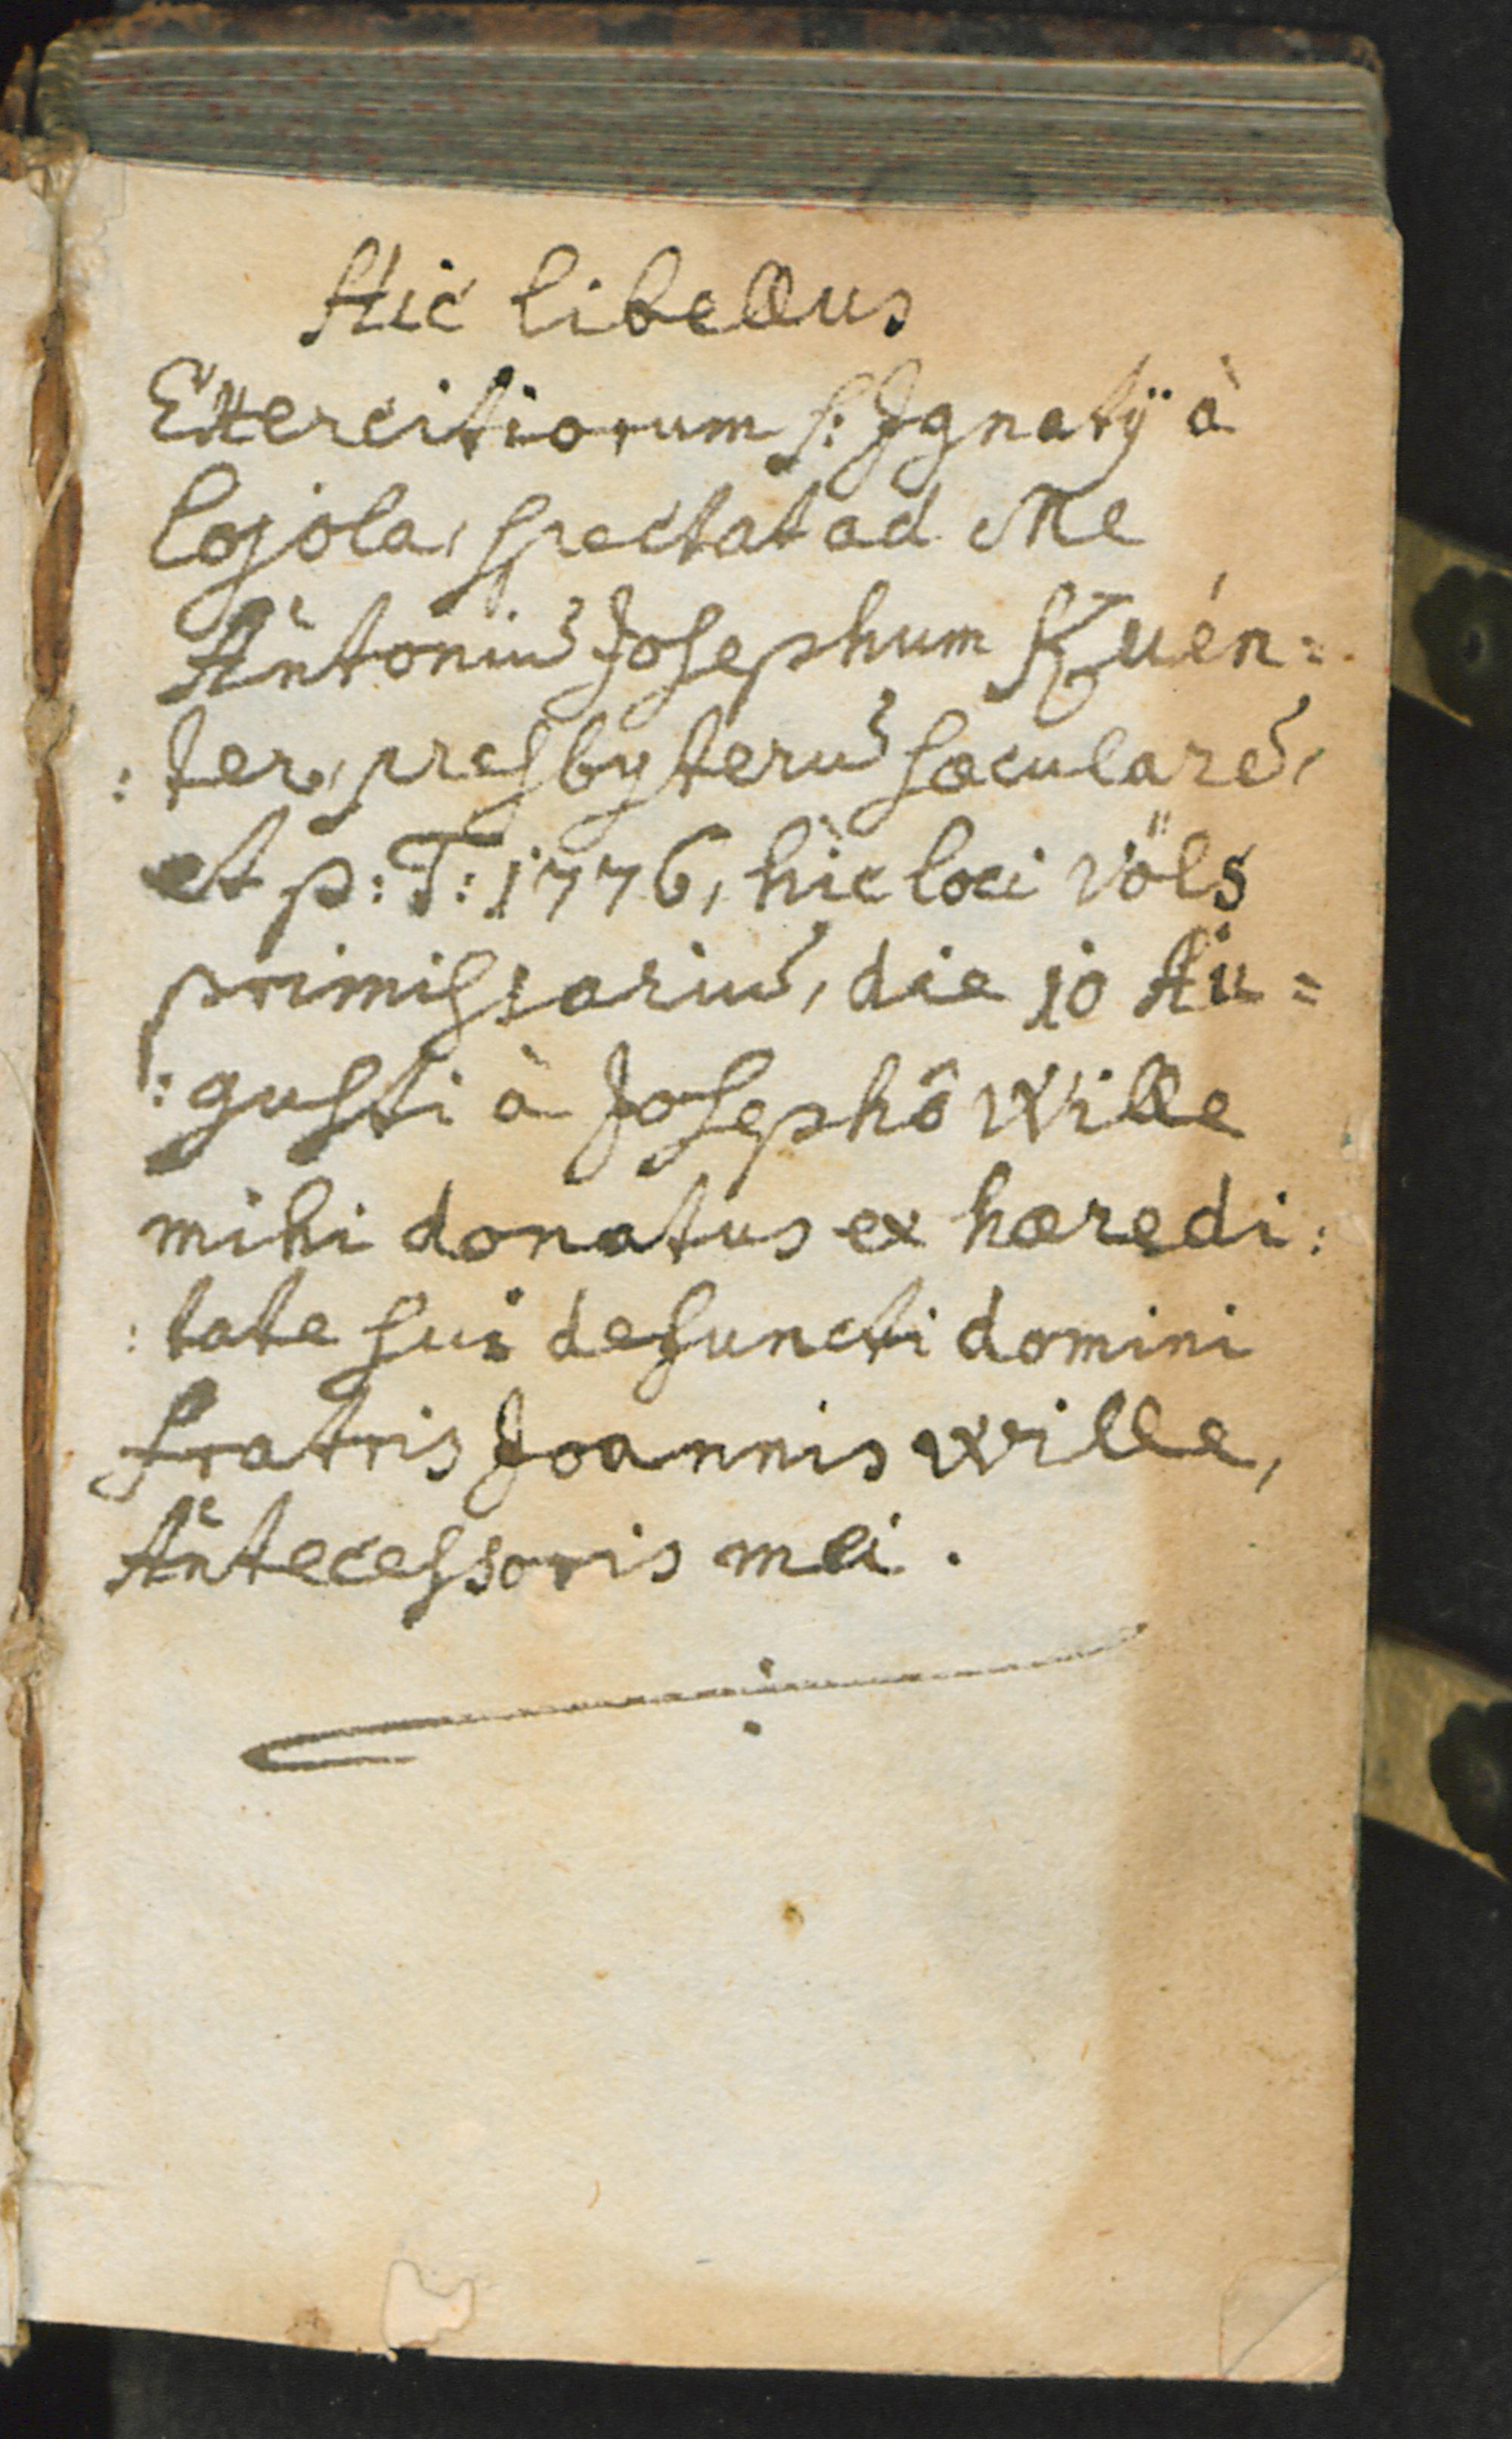 Hic libellus
Exercitiorum S: Ignatÿ à
Lojola, spectat ad Me
Antoniū Josephum Kuen=
:ter, presbyterū sæcularē,
et p: T: 1776, hic loci Völs
primissariū, die 10 Au=
:gusti à Josephô Wille
mihi donatus ex hæredi:
:tate sui defuncti domini
fratris Joannis Wille,
Antecessoris mei.